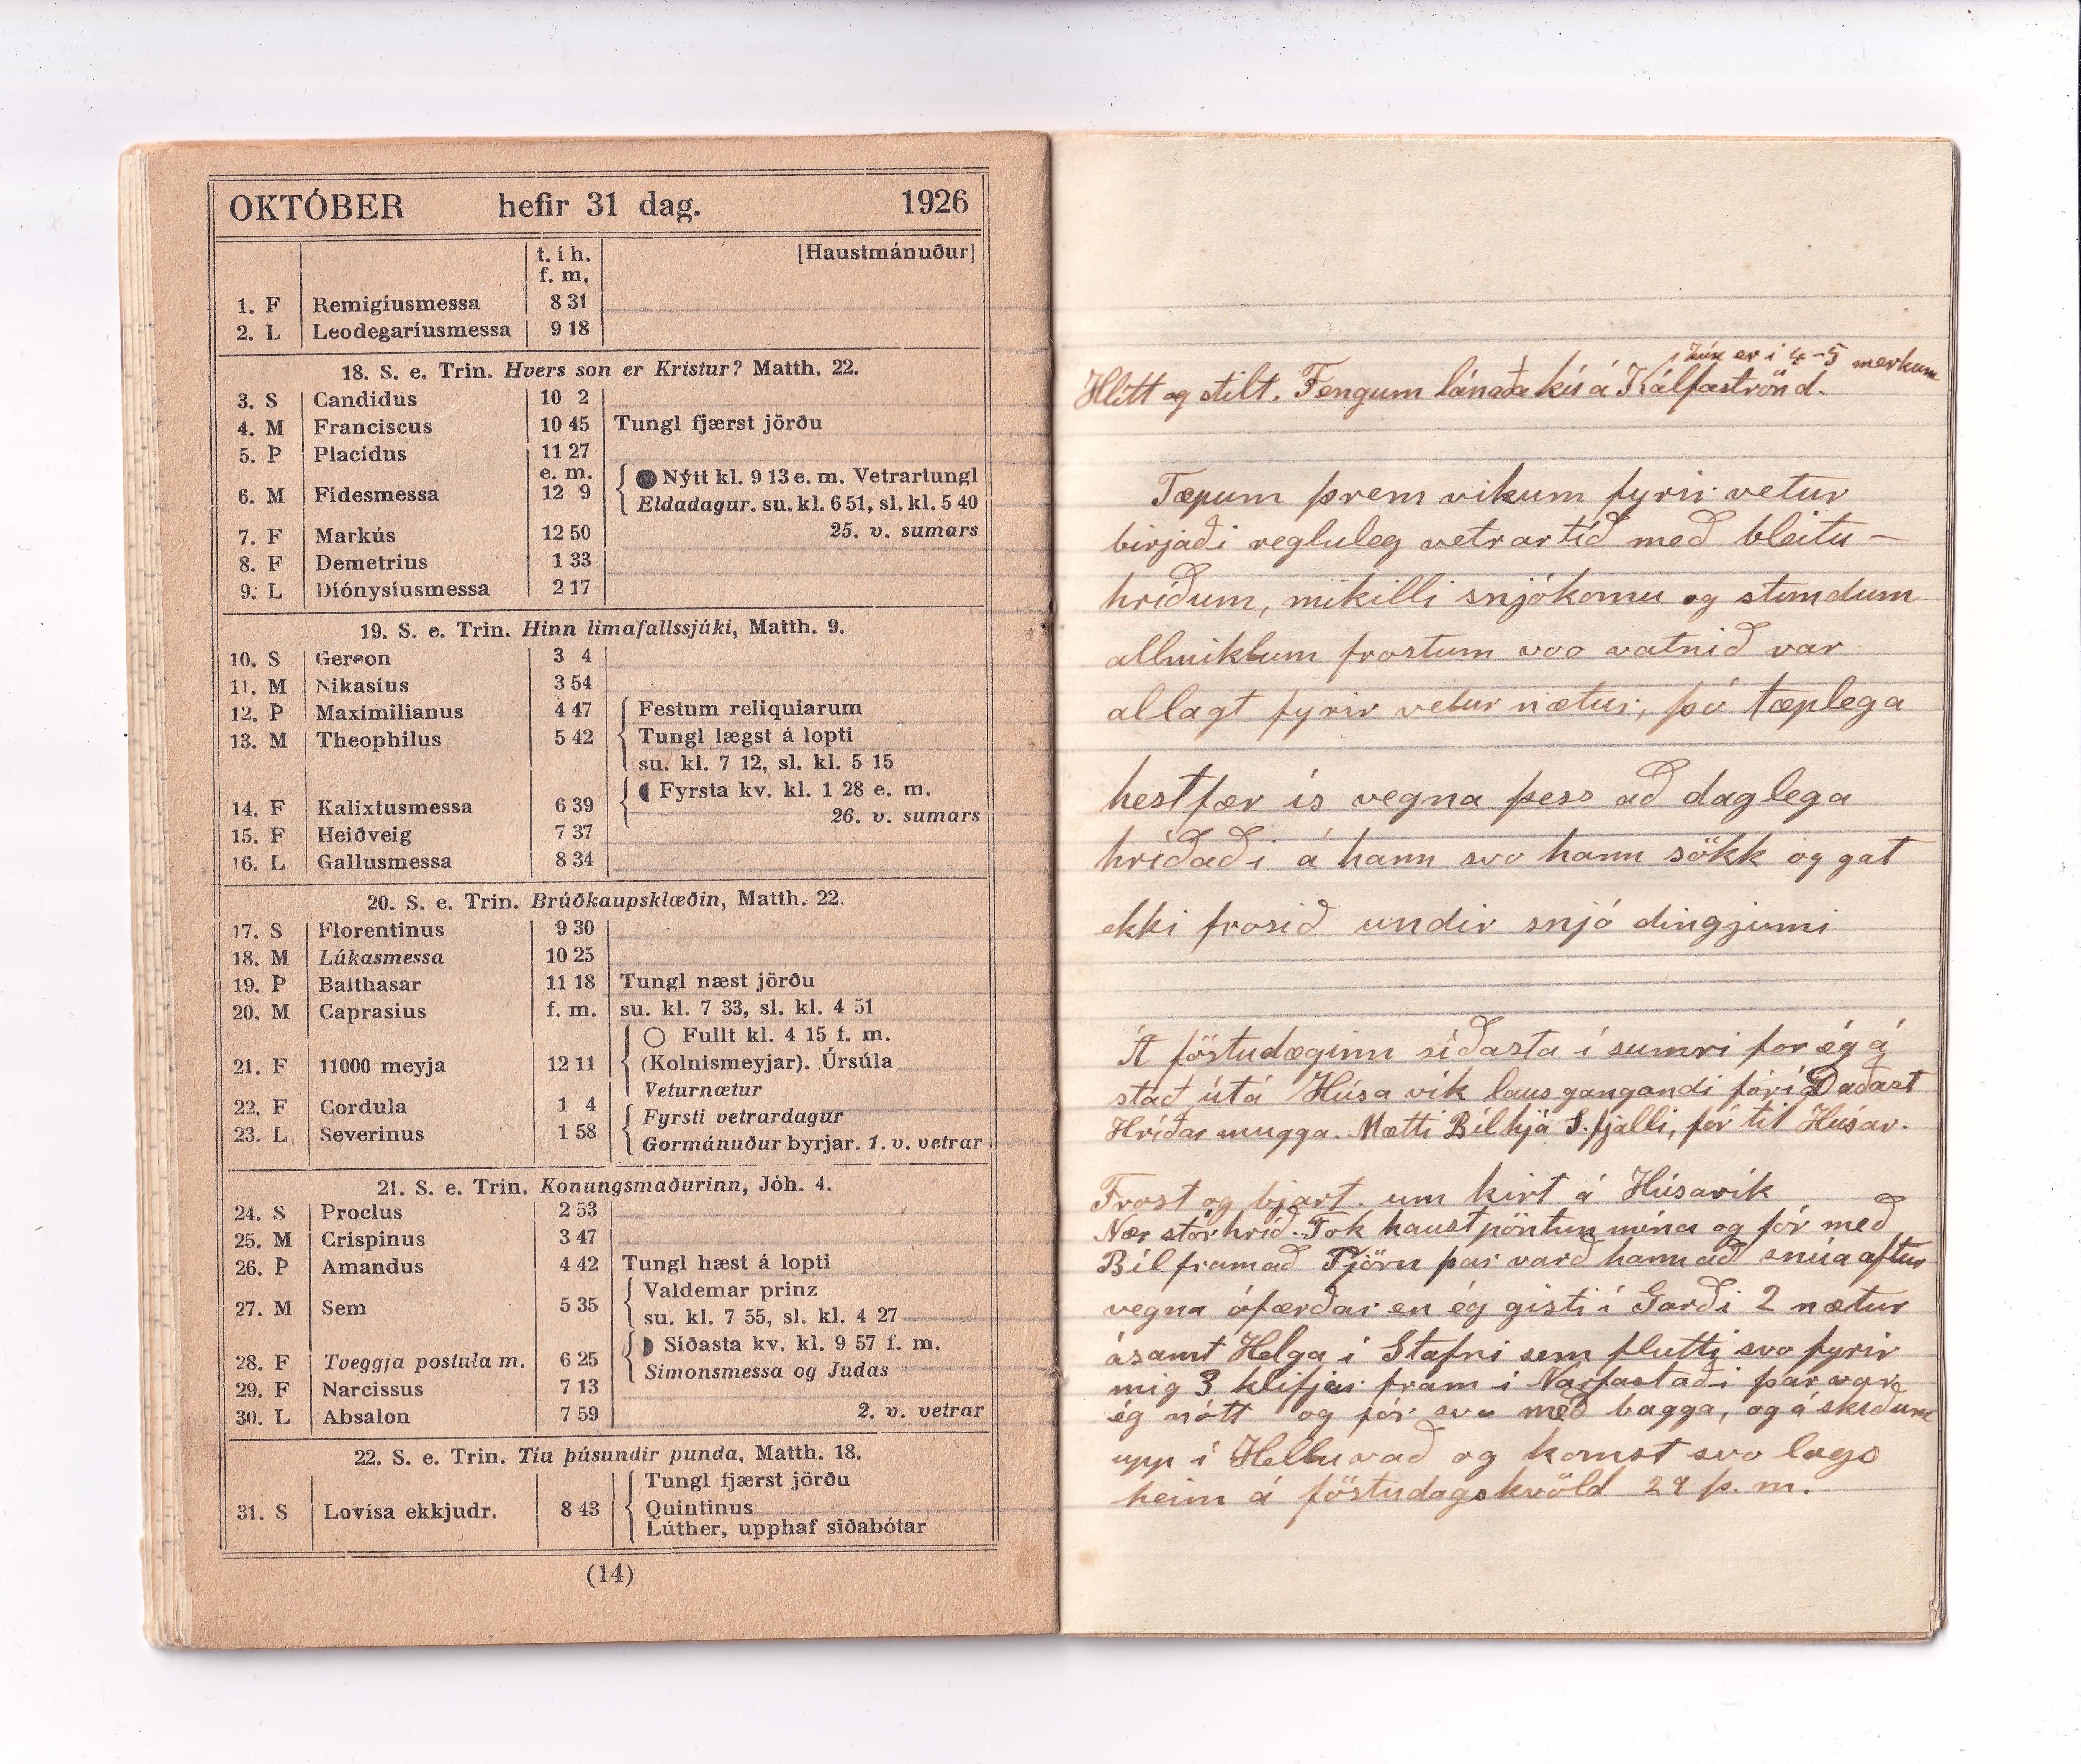 OKTÓBER hefir 31 dag. 1926
t. í h. [Haustmánuður]
f. m.
1. F Remigíusmessa 8 31
2. L Leodegaríusmessa 9 18
18. S. e. Trin. Hvers son er Kristur? Matth. 22.
3. S Candidus 10 2
4. M Franciscus 10 45 Tungl fjærst jörðu
5. Þ Placidus 11 27
e. m. Nýtt kl. 9 13 e. m. Vetrartungl
6. M Fídesmessa 12 9 Eldadagur. su. kl. 6 51, sl. kl. 5 40
7. F Markús 12 50 25. v. sumars
8. F Demetrius 1 33
9. L Díónysíusmessa 2 17
19. S. e. Trin. Hinn limafallssjúki, Matth. 9.
10. S Gereon 3 4
11. M Nikasius 3 54
12. Þ Maximilianus 4 47 Festum reliquiarum
13. M Theophilus 5 42 Tungl lægst á lopti
su. kl. 7 12, sl. kl. 5 15
Fyrsta kv. kl. 1 28 e. m.
14. F Kalixtusmessa 6 39 26. v. sumars
15. F Heiðveig 7 37
16. L Gallusmessa 8 34
20. S. e. Trin. Brúðkaupsklæðin, Matth. 22.
17. S Florentinus 9 30
18. M Lúkasmessa 10 25
19. Þ Balthasar 11 18 Tungl næst jörðu
20. M Caprasius f. m. su. kl. 7 33, sl. kl. 4 51
Fullt kl. 4 15 f. m.
21. F 11000 meyja 12 11 (Kolnismeyjar). Úrsúla
Veturnætur
22. F Cordula 1 4 Fyrsti vetrardagur
23. L Severinus 1 58 Gormánuður byrjar. 1. v. vetrar
21. S. e. Trin. Konungsmaðurinn, Jóh. 4.
24. S Proclus 2 53
25. M Crispinus 3 47
26. Þ Amandus 4 42 Tungl hæst á lopti
Valdemar prinz
27. M Sem 5 35 su. kl. 7 55, sl. kl. 4 27
Síðasta kv. kl. 9 57 f. m.
28. F Tveggja postula m. 6 25 Simonsmessa og Judas
29. F Narcissus 7 13
30. L Absalon 7 59 2. v. vetrar
22. S. e. Trin. Tíu þúsundir punda, Matth. 18.
Tungl fjærst jörðu
31. S Lovísa ekkjudr. 8 43 Quintinus
Lúther, upphaf siðabótar
(14)
er í 4-5 merkum
Hlítt og stilt. Fengum lánaða kú á Kálfaströnd.
Tæpum þrem vikum fyrir vetur
birjaði regluleg vetrartíð með bleitu-
hríðum, mikilli snjókomu og stundum
allmiklum frostum svo vatnið var
allagt fyrir vetur nætur, þó tæplega
hestfær ís vegna þess að daglega
hríðaði á hann svo hann sökk og gat
ekki frosið undir snjó dingjumi
Á föstudæginn síðasta í sumri for ég á
stað útá Húsa vík laus gangandi fór í Daðast
Hríðar mugga. Mætti Bíl hjá S.fjalli, fór til Húsav.
Frost og bjart. um kirt á Húsavík
Nær stórhríð. Tok haust pöntun mína og fór með
Bíl framað Tjörn þar varð hann að snúa aftur
vegna ófærðar en ég gisti í Garði 2 nætur
ásamt Helga í Stafni sem flutti svo fyrir
mig 3 klifjar fram í Narfastaði þar var
ég nótt og fór svo með bagga, og á skíðum
upp í Helluvað og komst svo lags
heim á föstudagskvöld 29 þ. m.